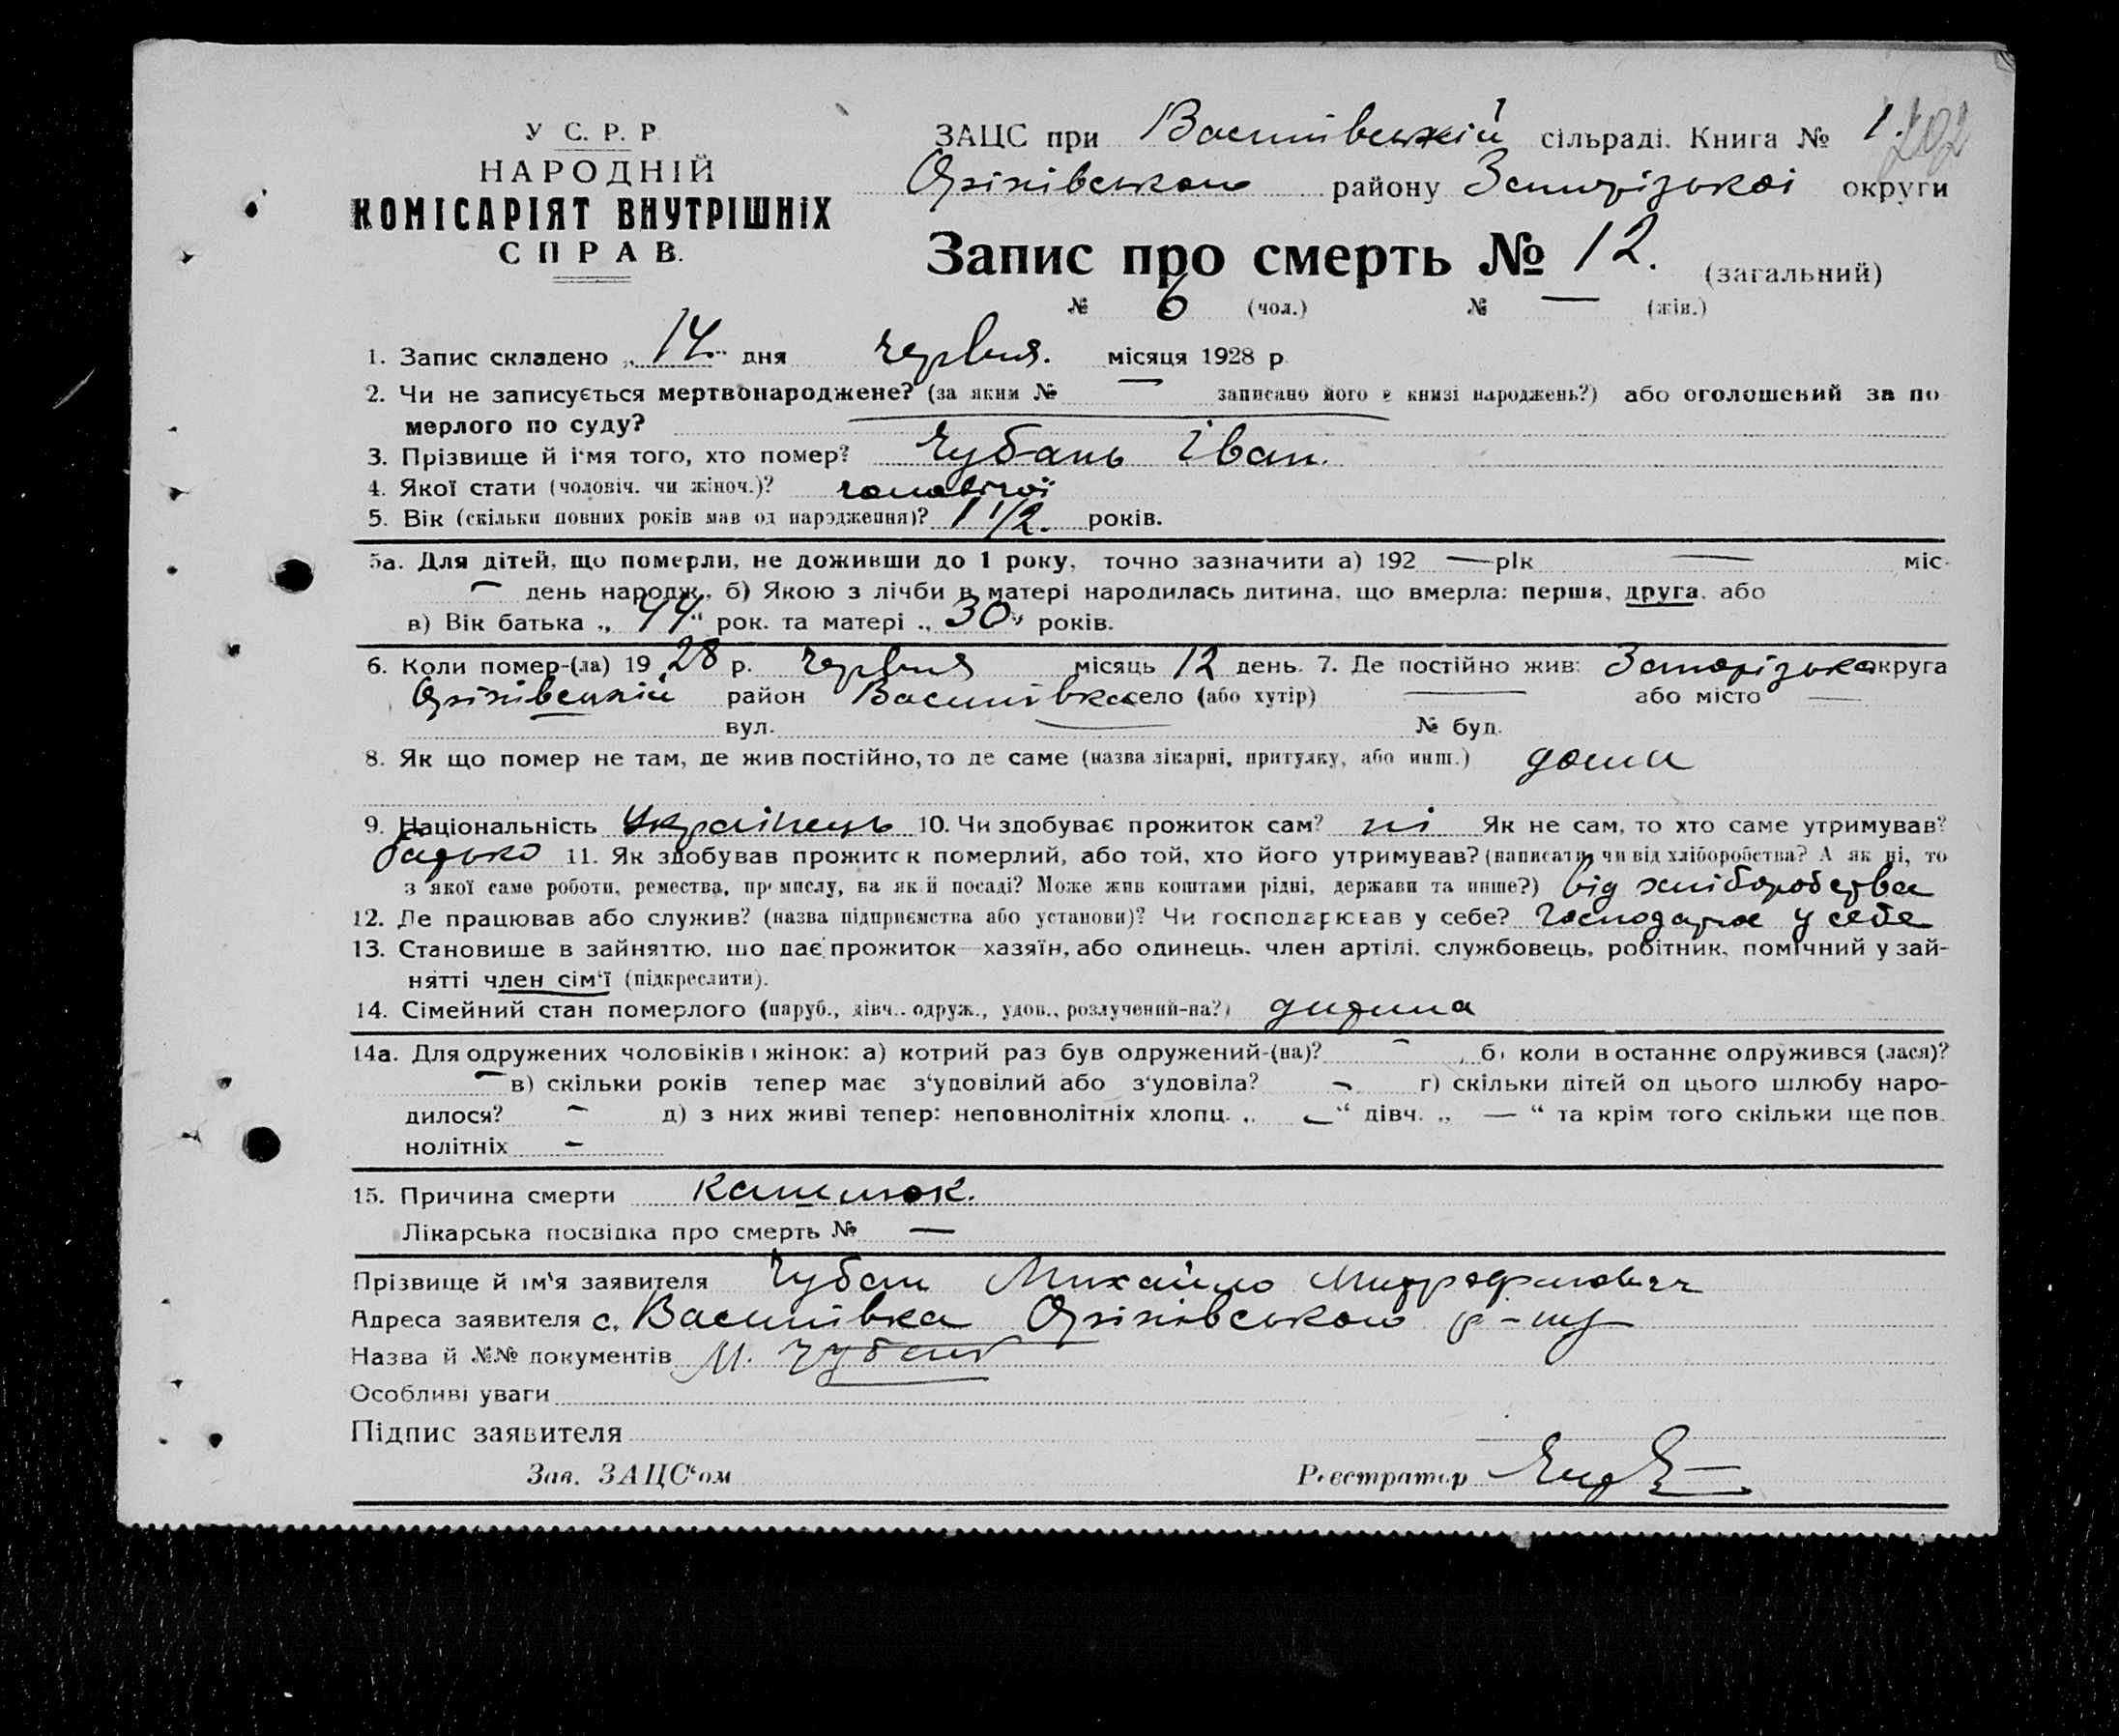 У С. Р. Р.
НАРОДНІЙ
КОМІСАРІЯТ ВНУТРІШНІХ
СПРАВ.
ЗАЦС при Василівській сільраді. Книга № 1. 202
Оріхівського району Запорізької округи
Запис про смерть № 12. (загальний)
№ 6 (чол.) № — (жін.)
1. Запис складено „ 14 " дня червня. місяця 1928 р.
2. Чи не записується мертвонароджене? (за яким № — записано його в книзі народжень?) або оголошений за по
мерлого по суду?
3. Прізвище й ім'я того, хто помер? Чубань Іван.
4. Якої стати (чоловіч. чи жіноч.)? чоловічої
5. Вік (скільки повних років мав од народження)? 1 1/2. років.
5а. Для дітей, що померли, не доживши до 1 року, точно зазначити а) 192 — рік — міс.
— день народж., б) Якою з лічби в матері народилась дитина, що вмерла: перша, друга, або
в) Вік батька „ 44 " рок. та матері „ 30 " років.
6. Коли помер-(ла) 19 28 р. червня місяць 12 день. 7. Де постійно жив: Запорізька округа
Оріхівський район Василівка село (або хутір) — або місто —
вул. — № буд.
8. Як що помер не там, де жив постійно, то де саме (назва лікарні, притулку, або инш.) дома
9. Національність Українець 10. Чи здобуває прожиток сам? ні Як не сам, то хто саме утримував?
батько 11. Як здобував прожиток померлий, або той, хто його утримував? (написати, чи від хліборобства? А як ні, то
з якої саме роботи, ремества, промислу, на якій посаді? Може жив коштами рідні, держави та инше?) від хліборобства
12. Де працював або служив? (назва підприємства або установи)? Чи господарював у себе? Господарює у себе
13. Становище в зайняттю, що дає прожиток—хазяїн, або одинець, член артілі, службовець, робітник, помічний у зай-
нятті член сім'ї (підкреслити).
14. Сімейний стан померлого (паруб., дівч., одруж., удов., розлучений-на?) дитина
14а. Для одружених чоловіків і жінок: а) котрий раз був одружений-(на)? — , б) коли в останнє одружився (лася)?
— в) скільки років тепер має з'удовілий або з'удовіла? — г) скільки дітей од цього шлюбу наро-
дилося? — д) з них живі тепер: неповнолітніх хлопц. „ — " дівч. „ — " та крім того скільки ще пов.
нолітніх —
15. Причина смерти кашлюк.
Лікарська посвідка про смерть № —
Прізвище й ім'я заявителя Чубань Михайло Митрофанович
Адреса заявителя с. Василівка Оріхівського р-ну
Назва й №№ документів М. Чубань
Особливі уваги
Підпис заявителя
Зав. ЗАЦС'ом Реєстратор